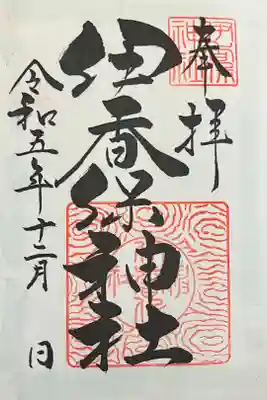 奉拝
伊香保神社
令和五年十二月 日